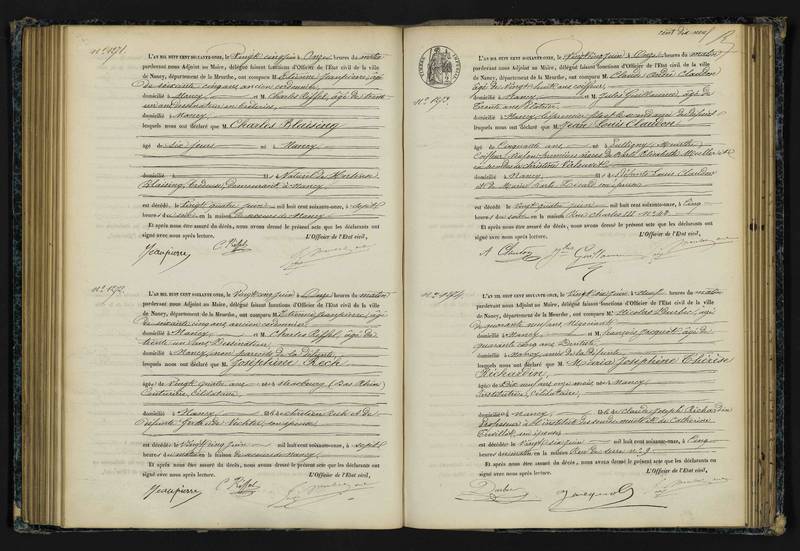 cent dix-neuf
N.° 1971.
L'AN MIL HUIT CENT SOIXANTE-ONZE, le Vingt cinq juin à Onze heures du matin
pardevant nous Adjoint au Maire, délégué faisant fonctions d'Officier de l'Etat civil de la ville
de Nancy, département de la Meurthe, ont comparu M. Etienne Jeanpierre, âgé
de soixante cinq ans ancien cordonnier
domicilié à Nancy et M. Charles Riffel, âgé de trente
un ans Dessinateur en broderies
domicilié à Nancy
lesquels nous ont déclaré que M. Charles Blaising
âgé de six jours né à Nancy
domicilié à fils Naturel de Hortense
Blaising, brodeuse, Demeurant à Nancy
est décédé le Vingt quatre juin mil huit cent soixante-onze, à sept
heures du soir en la maison de secours de Nancy
Et après nous être assuré du décès, nous avons dressé le présent acte que les déclarants ont
signé avec nous après lecture. L'Officier de l'Etat civil,
Jeanpierre C. Riffel
N.° 1972.
L'AN MIL HUIT CENT SOIXANTE-ONZE, le Vingt cinq juin à Onze heures du matin
pardevant nous Adjoint au Maire, délégué faisant fonctions d'Officier de l'Etat civil de la ville
de Nancy, département de la Meurthe, ont comparu M. Etienne Jeanpierre, âgé
de soixante cinq ans ancien cordonnier
domicilié à Nancy et M. Charles Riffel, âgé de
trente un ans Dessinateur
domicilié à Nancy, non parents de la défunte
lesquels nous ont déclaré que M. Joséphine Rich
âgée de Vingt quatre ans née à Strasbourg (Bas Rhin)
Couturière, Célibataire
domicilié à Nancy fille de Chrétien Rich et de
défunte Gertrude
est décédée le Vingt cinq juin mil huit cent soixante-onze, à sept
heures du matin en la maison de secours de Nancy
Et après nous être assuré du décès, nous avons dressé le présent acte que les déclarants ont
signé avec nous après lecture. L'Officier de l'Etat civil,
Jeanpierre C. Riffel
N.° 1973
L'AN MIL HUIT CENT SOIXANTE-ONZE, le Vingt cinq juin à Onze heures du matin
pardevant nous Adjoint au Maire, délégué faisant fonctions d'Officier de l'Etat civil de la ville
de Nancy, département de la Meurthe, ont comparu M. Claude André Claudon
âgé de Vingt huit ans coiffeur
domicilié à Nancy et M. Jules Guillaume, âgé de
Trente ans
domicilié à Nancy, le premier fils et le second ami du défunt
lesquels nous ont déclaré que M. Jean Louis Claudon
âgé de Cinquante ans né à Pulligny (Meurthe)
Coiffeur, en premières noces de Marie Elisabeth Mueller et
en secondes de Christine
domicilié à Nancy fils de Défunts Louis Claudon
et de Marie
est décédé le Vingt quatre juin mil huit cent soixante-onze, à Cinq
heures du soir en la maison Rue Charles III N° 48
Et après nous être assuré du décès, nous avons dressé le présent acte que les déclarants ont
signé avec nous après lecture. L'Officier de l'Etat civil,
A Claudon Jles Guillaume
N.° 1974
L'AN MIL HUIT CENT SOIXANTE-ONZE, le Vingt six juin à Neuf heures du matin
pardevant nous Adjoint au Maire, délégué faisant fonctions d'Officier de l'Etat civil de la ville
de Nancy, département de la Meurthe, ont comparu M. Nicolas Durbec, âgé
de quarante neuf ans Négociant
domicilié à Nancy et M. François Jacquot, âgé de
quarante cinq ans Dentiste
domicilié à Nancy, amis de la défunte
lesquels nous ont déclaré que M. Maria Joséphine Thérèse
Richardin
âgée de Dix neuf ans onze mois née à Nancy
Institutrice, Célibataire
domicilié à Nancy fille de Claude Joseph Richardin
Professeur à l'institut des sourds muets et de Catherine
est décédée le Vingt six juin mil huit cent soixante-onze, à Cinq
heures du matin en la maison Rue de Serre N° 9
Et après nous être assuré du décès, nous avons dressé le présent acte que les déclarants ont
signé avec nous après lecture. L'Officier de l'Etat civil,
Durbec Jacquot